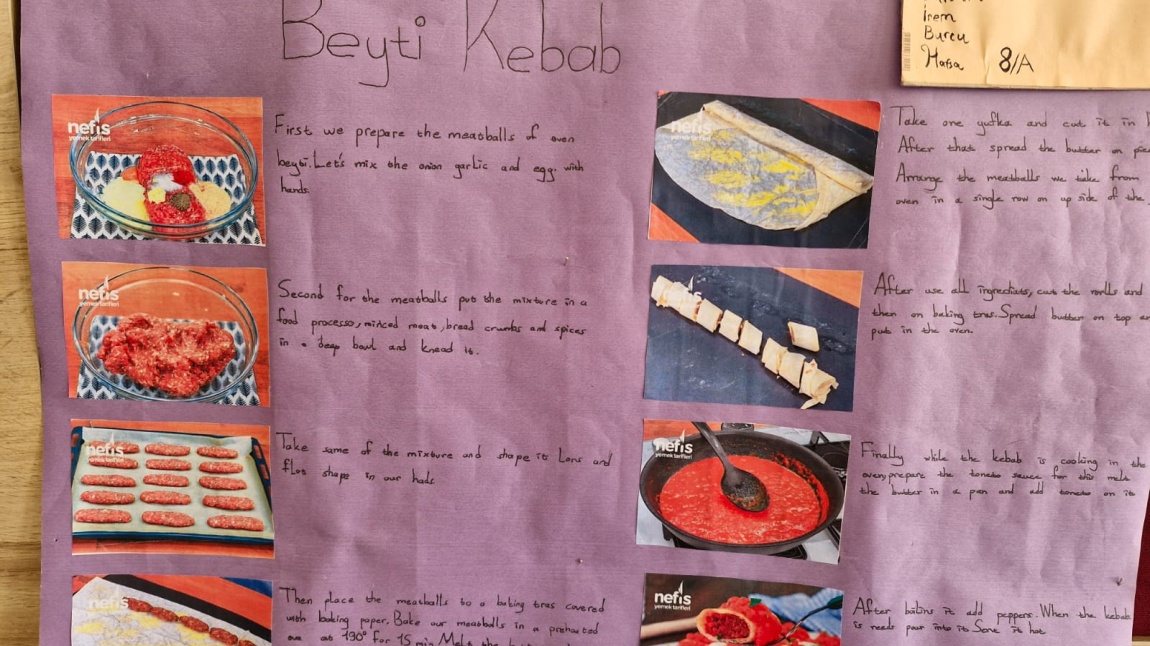 Beyti Kebab
Irem
Burcu
Hafsa 8/A
nefis
yemek tarifleri
First we prepare the meatballs of oven
beyti. Let's mix the onion garlic and egg with
hands.
nefis
yemek tarifleri
Second for the meatballs put the mixture in a
food processo, minced meat, bread crumbs and spices
in a deep bowl and knead it.
nefis
yemek tarifleri
Take some of the mixture and shape it Lons and
flat shape in our hads
nefis
yemek tarifleri
Then place the meatballs to a baking tras covered
with baking paper. Bake our meatballs in a prehoated
at 190° for 15 min
nefis
Take one yufka and cut it in
After that spread the butter on
Arrange the meatballs we take from
oven in a single row on up side of the
nefis
After use all ingredicts, cut the rolls and
then on baking tras. Spread butter on top
put in the oven.
nefis
yemek tarifleri
Finally while the kebab is cooking in the
oven, prepare the tomato sauce for this melt
the butter in a pan and add tomato on it
nefis
yemek tarifleri
After baking it add peppers. When the kebab
is ready pour into it. Serve it hot